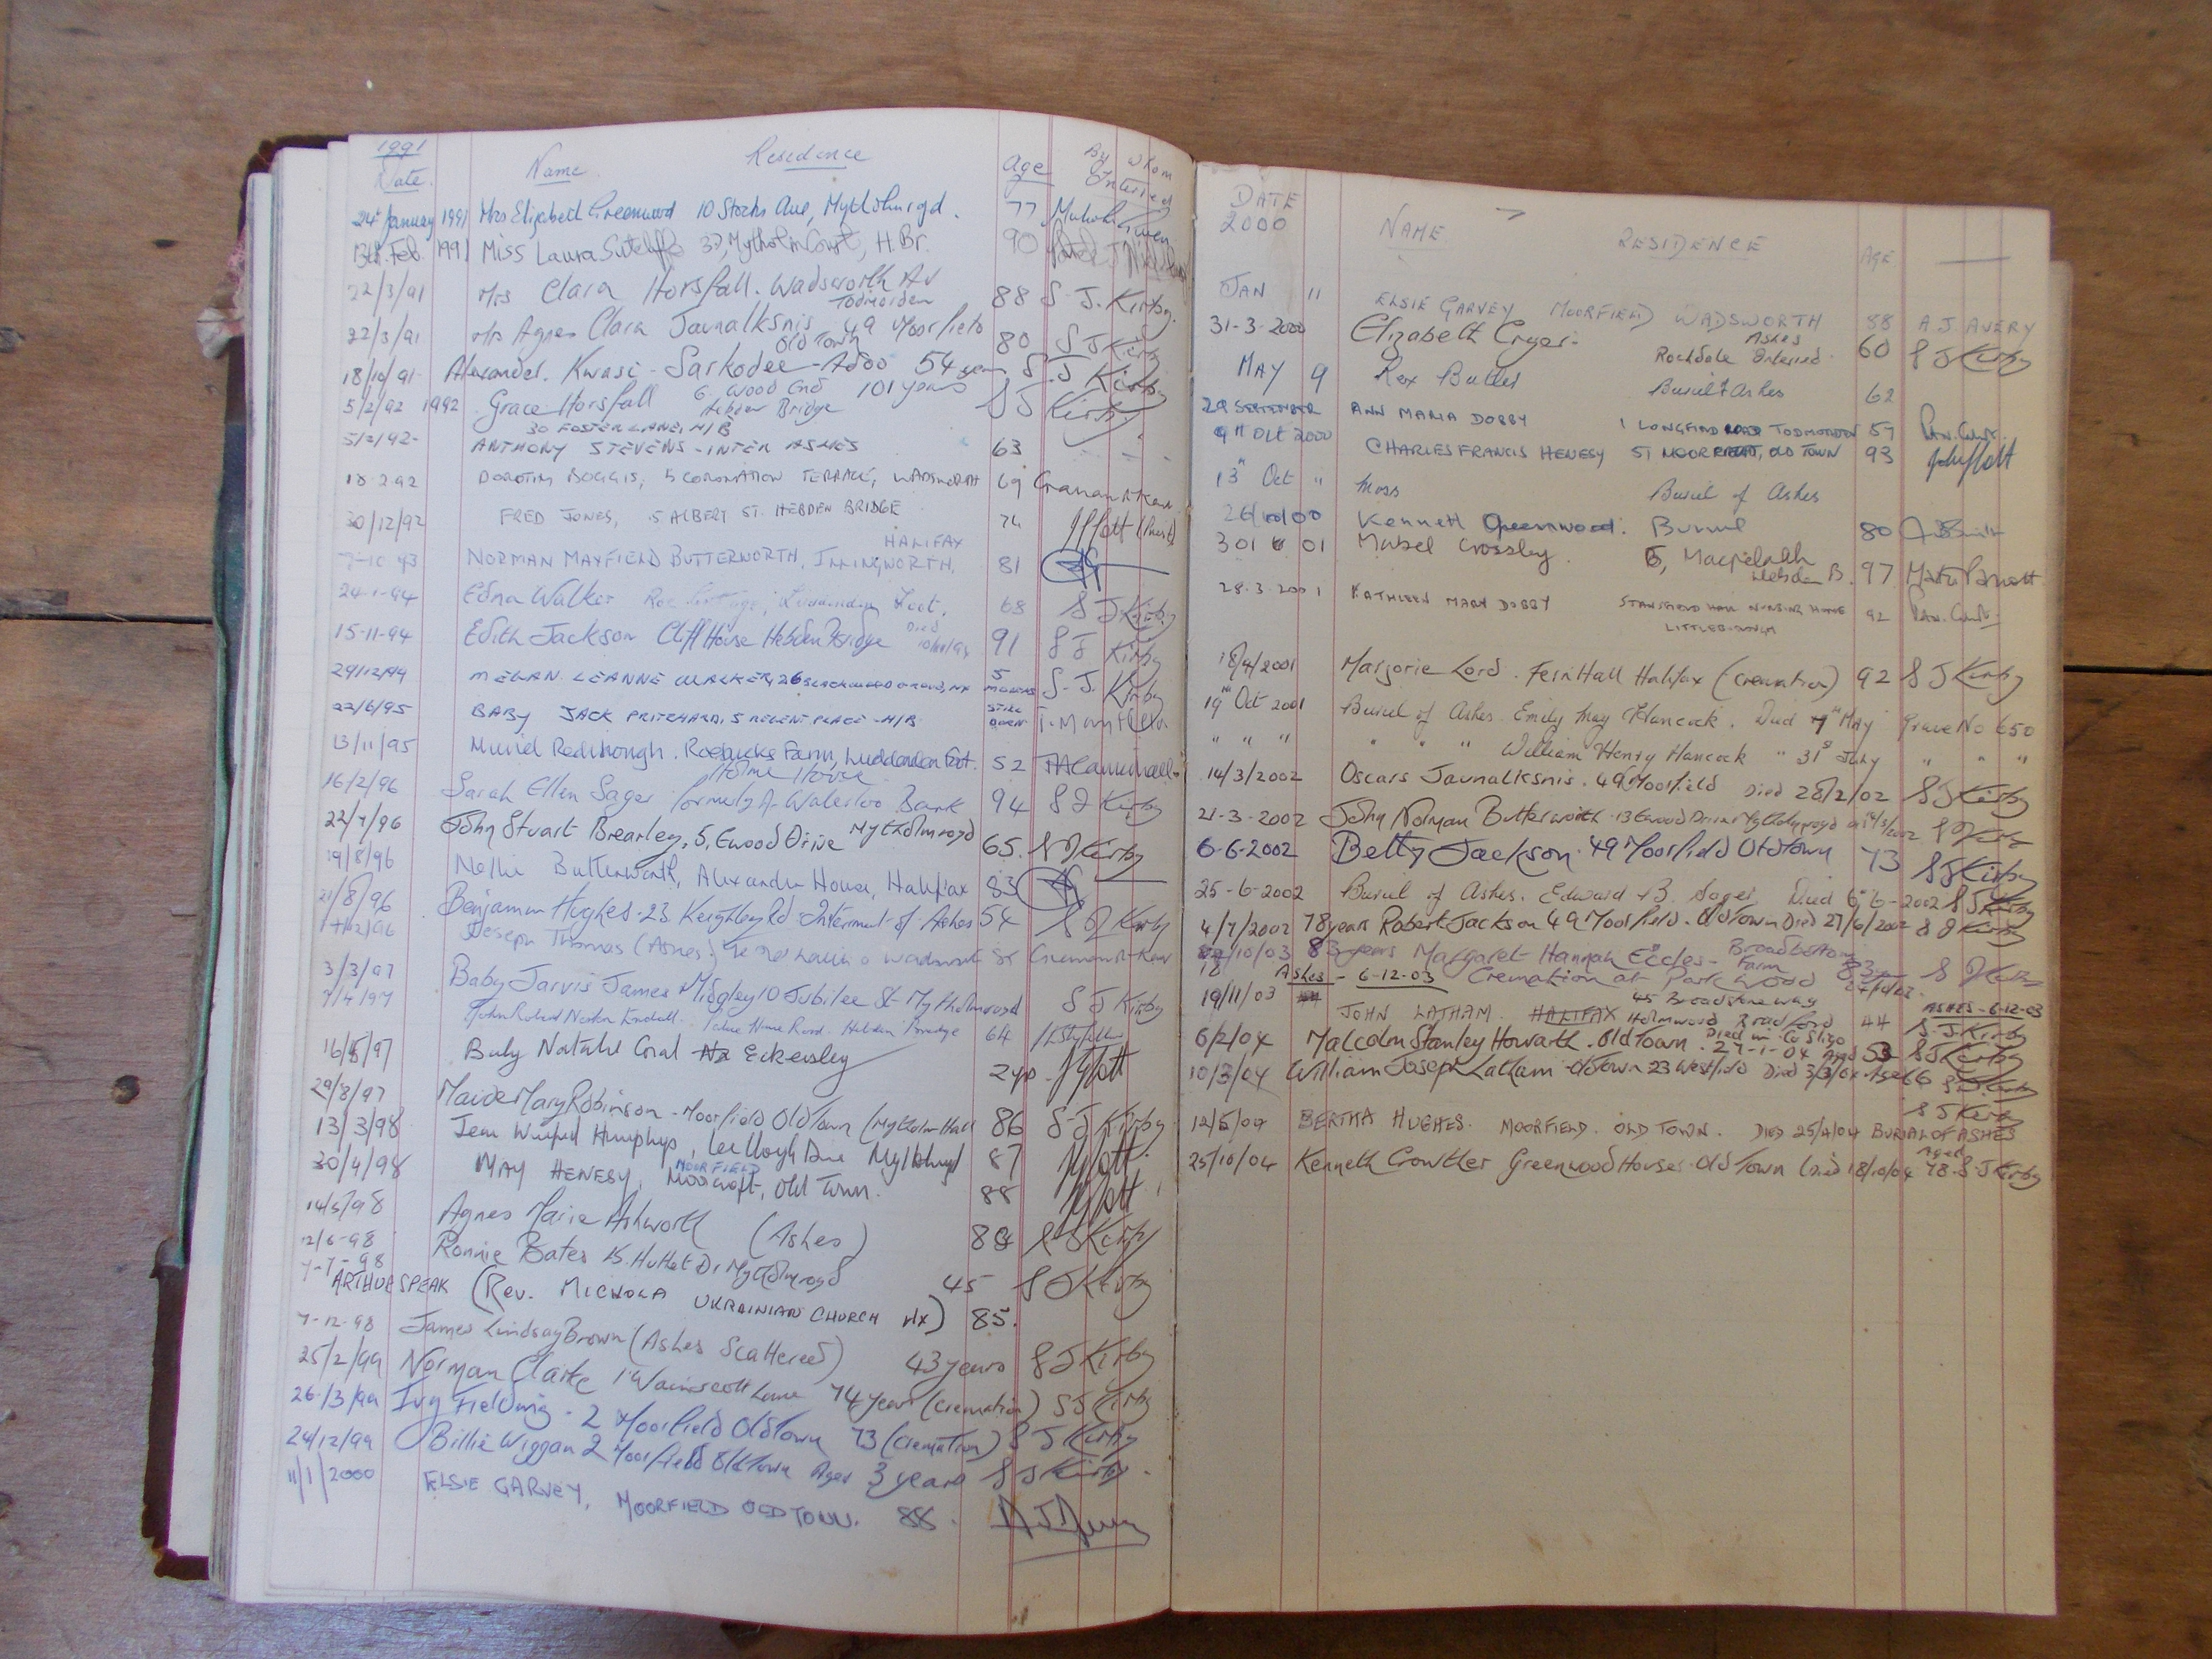 1991
Date. Name Residence Age By Whom Interred
24th January 1991 Mrs Elizabeth Greenwood 10 Stocks Ave, Mytholmroyd. 77
13th Feb. 1991 Miss Laura Sutcliffe 37, Mytholm Court, H. Br. 90
22/3/91 Mrs Clara Horsfall. Wadsworth Av Todmorden 88 S. J. Kirby.
22/3/91 Mrs Agnes Clara Jaunalksnis 49 Moorfield Old Town 80 S J Kirby
18/10/91 Alexander. Kwasi - Sarkodee - Adoo 54 years S. J Kirby
5/2/92 1992 Grace Horsfall 6 Wood End Hebden Bridge 101 years S J Kirby
30 FOSTER LANE, H/B
5/2/92 ANTHONY STEVENS - INTER ASHES 63
18.2.92 DOROTHY BOGGIS, 5 CORONATION TERRACE, WADSWORTH 69
30/12/92 FRED JONES, 5 ALBERT ST. HEBDEN BRIDGE 74
7-10-93 NORMAN MAYFIELD BUTTERWORTH, ILLINGWORTH, HALIFAX 81
24-1-94 Edna Walker Foot. 68 S J Kirby
15-11-94 Edith Jackson Cliff House Hebden Bridge Died 91 S J Kirby
29/12/94 MEGAN LEANNE WALKER, 26 5 MONTHS S. J. Kirby
22/6/95 BABY JACK PRITCHARD, 5 REGENT PLACE - H/B STILL BORN
13/11/95 Muriel Redihough. Roebucks Farm, Luddenden Foot. 52
16/2/96 Sarah Ellen Sager Holme House formerly A- Waterloo Bank 94 S J Kirby
22/7/96 John Stuart Brearley, 5, Ewood Drive Mytholmroyd 65. S J Kirby
19/8/96 Nellie Butterworth, Alexandra House, Halifax 83
21/8/96 Benjamin Hughes. 23 Keighley Rd. Interment of Ashes 54 S J Kirby
Joseph Thomas (Ashes)
3/3/97 Baby Jarvis James Midgley 10 Jubilee St Mytholmroyd S J Kirby
7/4/97 John Robert Hebden Bridge 64
16/5/97 Baby Natalie Coral Eckersley
29/8/97 Maude Mary Robinson - Moorfield Old Town (Mytholm Hall 86 S-J Kirby
13/3/98 Jean Winifred Humphrys, Mytholmroyd 87
30/4/98 MAY HENESY, MOORFIELD Old Town. 88
14/5/98 Agnes Marie Ashworth (Ashes) S J Kirby
12/6-98 Ronnie Bates Mytholmroyd 45 S J Kirby
7-7-98 ARTHUR SPEAK (Rev. MICHOLA UKRAINIAN CHURCH Hx) 85.
7-12-98 James Lindsay Brown (Ashes Scattered) 43 years S J Kirby
25/2/99 Norman Clarke 1 Wainscott Lane 74 years (cremation) S J Kirby
26/3/99 Ivy Fielding. 2 Moorfield Old Town 73 (cremation) S J Kirby
24/12/99 Billie Wiggan 2 Moorfield Old Town Aged 3 years S J Kirby.
11/1/2000 ELSIE GARVEY, MOORFIELD OLD TOWN. 88.
DATE
2000 NAME RESIDENCE AGE
JAN 11 ELSIE GARVEY MOORFIELD WADSWORTH 88 A. J. AVERY
31-3-2000 Elizabeth Cryer. Rochdale Ashes Interred 60 S J Kirby
MAY 9 Rex Butler Burial of Ashes 62
29 SEPTEMBER ANN MARIA DOBBY 1 LONGFIELD ROAD TODMORDEN 57
9th Oct 2000 CHARLES FRANCIS HENESY 51 MOORFIELD, OLD TOWN 93
13th Oct " Moss Burial of Ashes
26/10/00 Kenneth Greenwood. Burial 80
Mabel Crossley. 5, Machpelah Hebden B. 97
28.3.2001 KATHLEEN MARY DOBBY STANSFIELD HALL NURSING HOME LITTLEBOROUGH 92
18/4/2001 Marjorie Lord. Fern Hall Halifax (cremation) 92 S J Kirby
19th Oct 2001 Burial of Ashes Emily May Hancock. Died May Grave No 650
" " " " " " William Henry Hancock " 31st July " " "
14/3/2002 Oscars Jaunalksnis. 49 Moorfield Died 28/2/02 S J Kirby
21-3-2002 John Norman Butterworth. 13 Ewood Drive Mytholmroyd S J Kirby
6-6-2002 Betty Jackson. 49 Moorfield Old Town 73 S J Kirby
25-6-2002 Burial of Ashes. Edward B. Sager Died 6-2002 S J Kirby
4/7/2002 78 years Robert Jackson 49 Moorfield. Old Town Died 27/6/2002 S J Kirby
/10/03 83 years Margaret Hannah Eccles - Broadbottom Farm
Ashes - 6-12-03 Cremation at Park Wood
19/11/03 JOHN LATHAM. HALIFAX 45 Broadstone way Holmwood Bradford 44 ASHES - 6-12-03 S. J. Kirby
6/2/04 Malcolm Stanley Howarth. Old Town. Died in Co Sligo 27-1-04 Aged 53 S J Kirby
10/3/04 William Joseph Latham Old Town 23 Westfield Died 3/3/04 Aged 66
S J Kirby
12/5/04 BERTHA HUGHES. MOORFIELD. OLD TOWN. DIED 25/4/04 BURIAL OF ASHES
25/10/04 Kenneth Crowther Greenwood House. Old Town Died 18/10/04 Aged 78. S. J Kirby